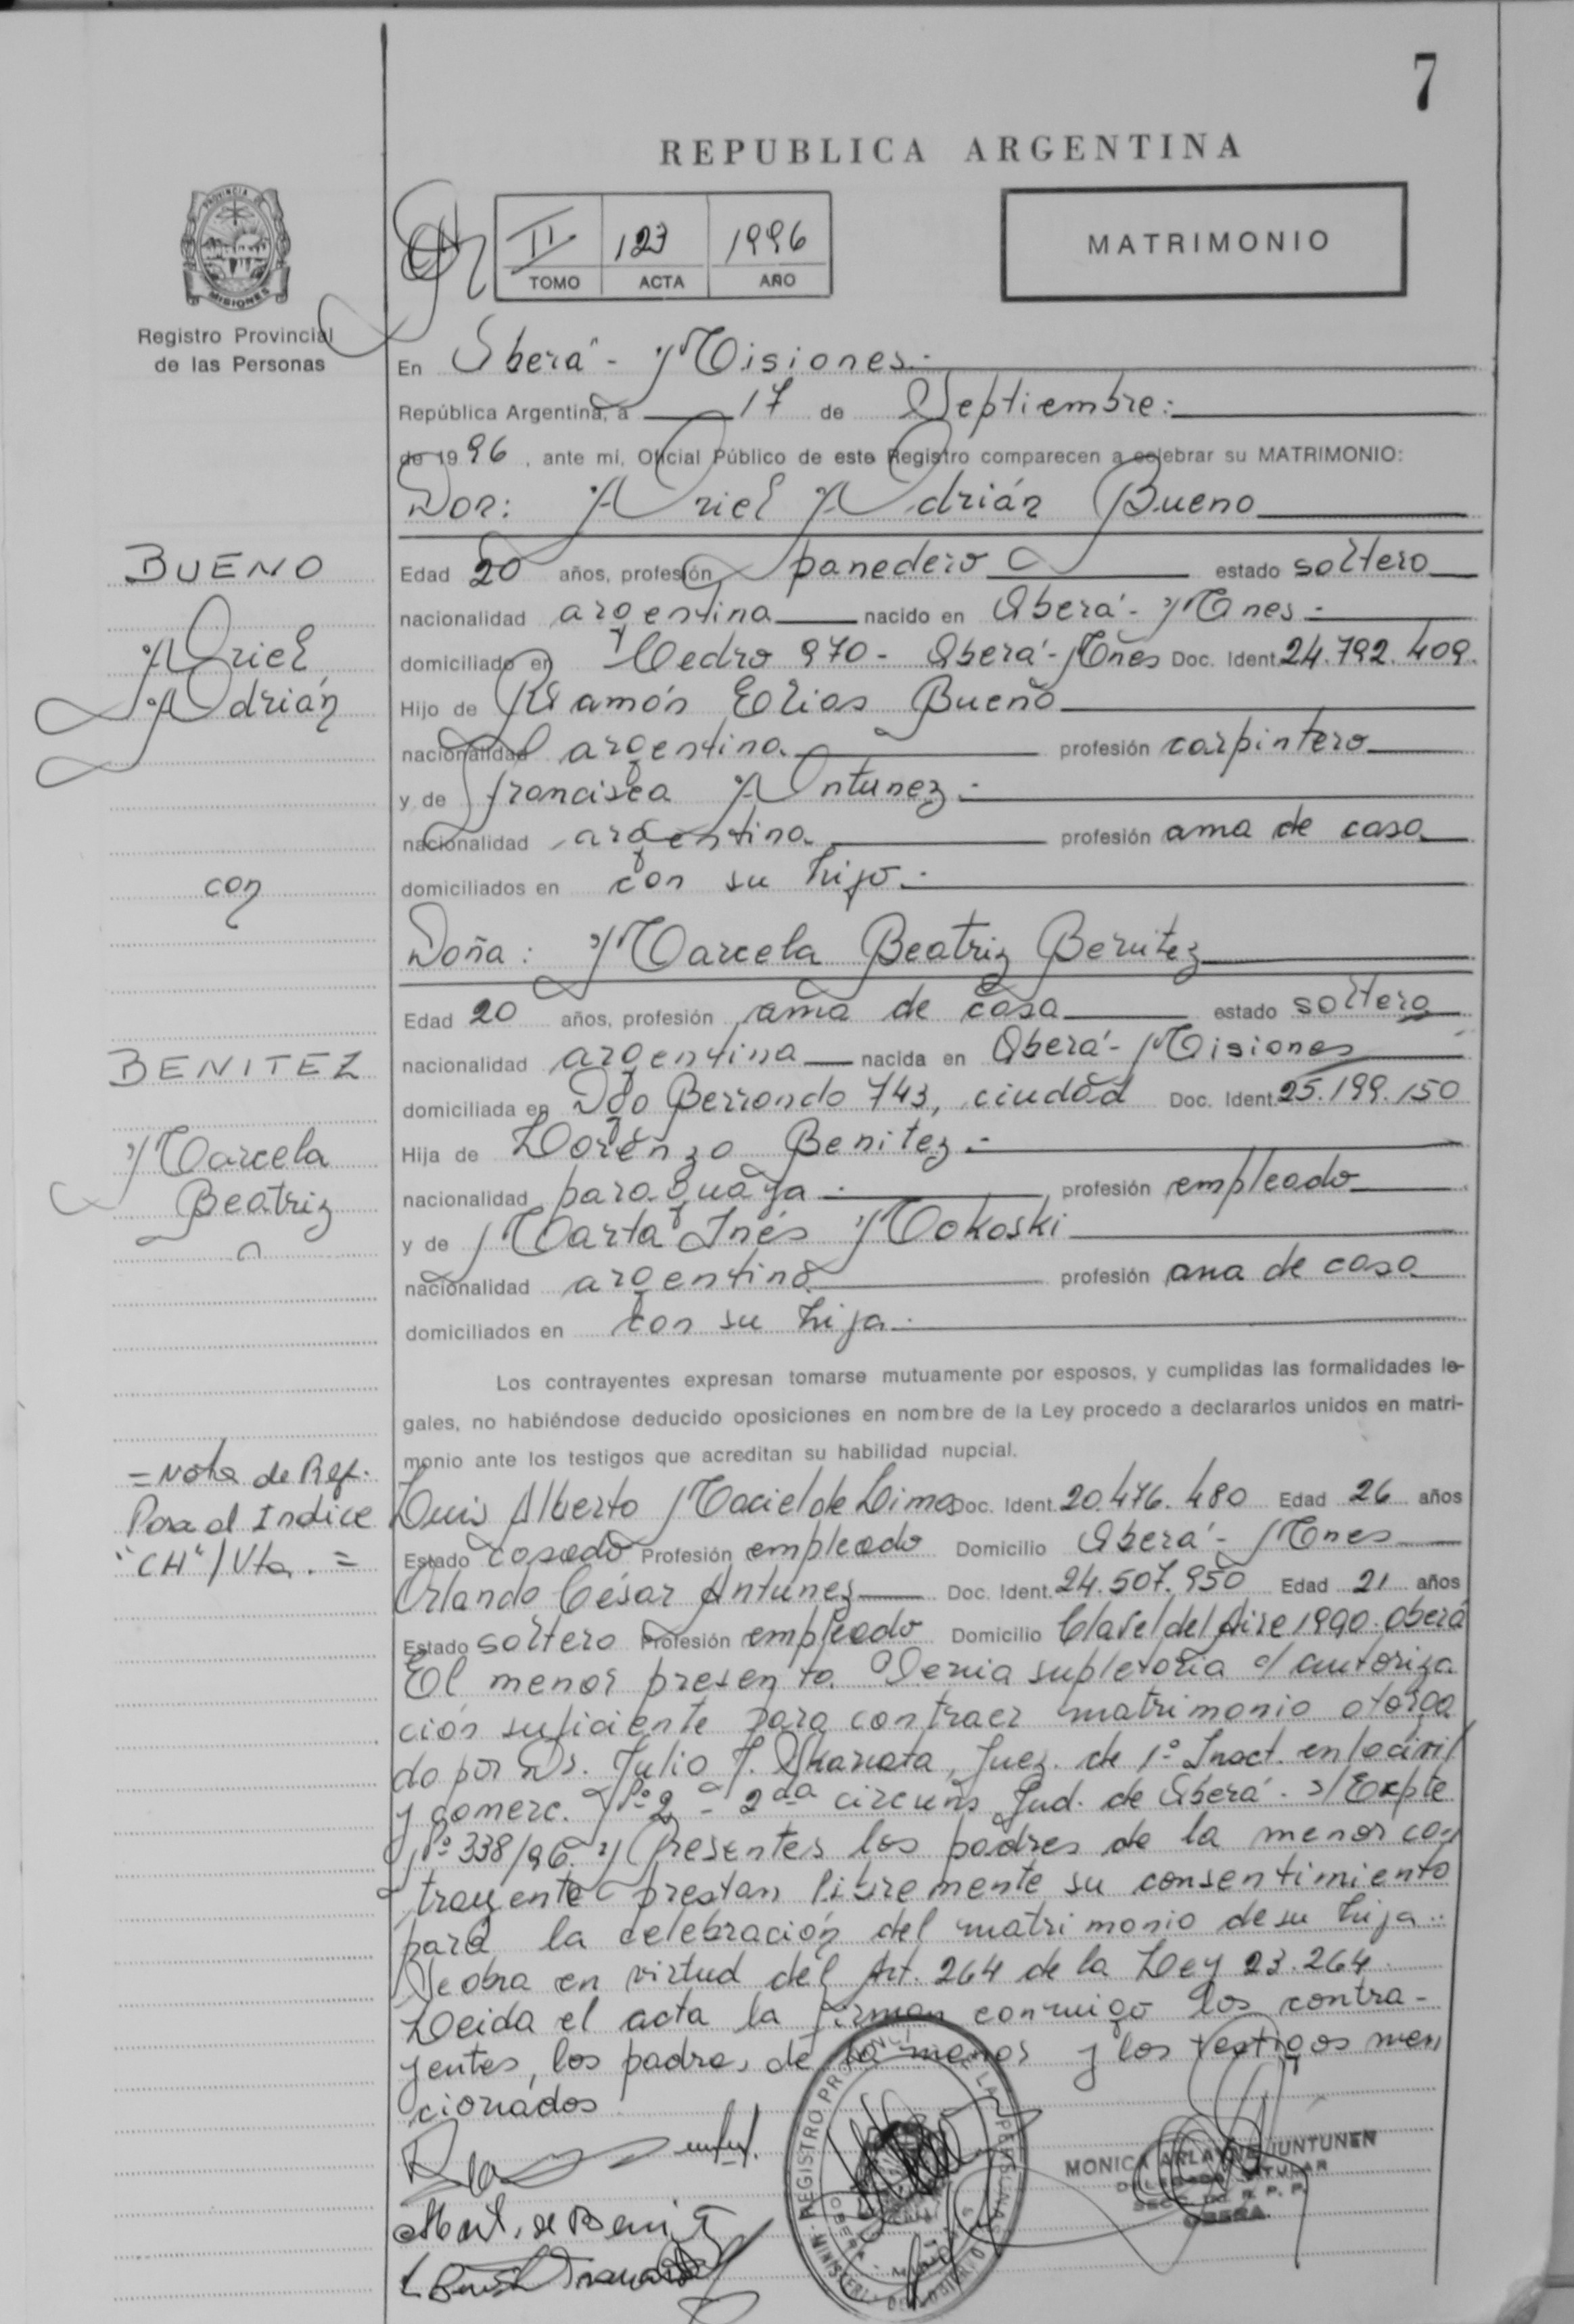 7
REPUBLICA ARGENTINA
II 123 1996
TOMO ACTA AÑO
MATRIMONIO
PROVINCIA DE
MISIONES
Registro Provincial
de las Personas
En Oberá - Misiones.-
República Argentina, a 17 de Septiembre:
de 1996, ante mi, Oficial Público de este Registro comparecen a celebrar su MATRIMONIO:
Don: Ariel Adrián Bueno
Edad 20 años, profesión panedero estado soltero
nacionalidad argentina nacido en Oberá - Mnes.-
domiciliado en Cedro 970 - Oberá - Mnes Doc. Ident. 24.792.409.
Hijo de Ramón Elias Bueno
nacionalidad argentina profesión carpintero
y de Francisca Antunez.-
nacionalidad argentina profesión ama de casa
domiciliados en con su hijo.-
Doña: Marcela Beatriz Benitez
Edad 20 años, profesión ama de casa estado soltera
nacionalidad argentina nacida en Oberá - Misiones
domiciliada en Dgo Berrondo 743, ciudad Doc. Ident. 25.199.150
Hija de Lorenzo Benitez.-
nacionalidad paraguaya.- profesión empleado
y de Marta Inés Mokoski
nacionalidad argentina profesión ana de casa
domiciliados en con su hija.-
Los contrayentes expresan tomarse mutuamente por esposos, y cumplidas las formalidades le-
gales, no habiéndose deducido oposiciones en nombre de la Ley procedo a declararlos unidos en matri-
monio ante los testigos que acreditan su habilidad nupcial.
Luis Alberto Maciel de Lima Doc. Ident. 20.476.480 Edad 26 años
Estado casado Profesión empleado Domicilio Oberá - Mnes
Orlando César Antunez Doc. Ident. 24.507.950 Edad 21 años
Estado soltero Profesión empleado Domicilio Clavel del Aire 1990. Oberá
El menor presenta Venia supletoria d/ autoriza
ción suficiente para contraer matrimonio otorga
do por Dr. Julio J. Juez. de 1º Inst. en lo civil
y comerc. Nº 2 - 2da circuns Jud. de Oberá. s/ Expte
Nº 338/96. y Presentes los padres de la menor con
trayente prestan libremente su consentimiento
para la celebración del matrimonio de su hija..
Se obra en virtud del Art. 264 de la Ley 23.264.
Leida el acta la firman conmigo los contra-
yentes, los padres de la menor y los testigos men
cionados
REGISTRO PROVINCIAL DE LAS PERSONAS
MONICA JUNTUNEN
DELEGADA TITULAR
OBERA
BUENO
Ariel
Adrián
con
BENITEZ
Marcela
Beatriz
= Nota de Ref.
Para el Indice
"CH" / Vta. =